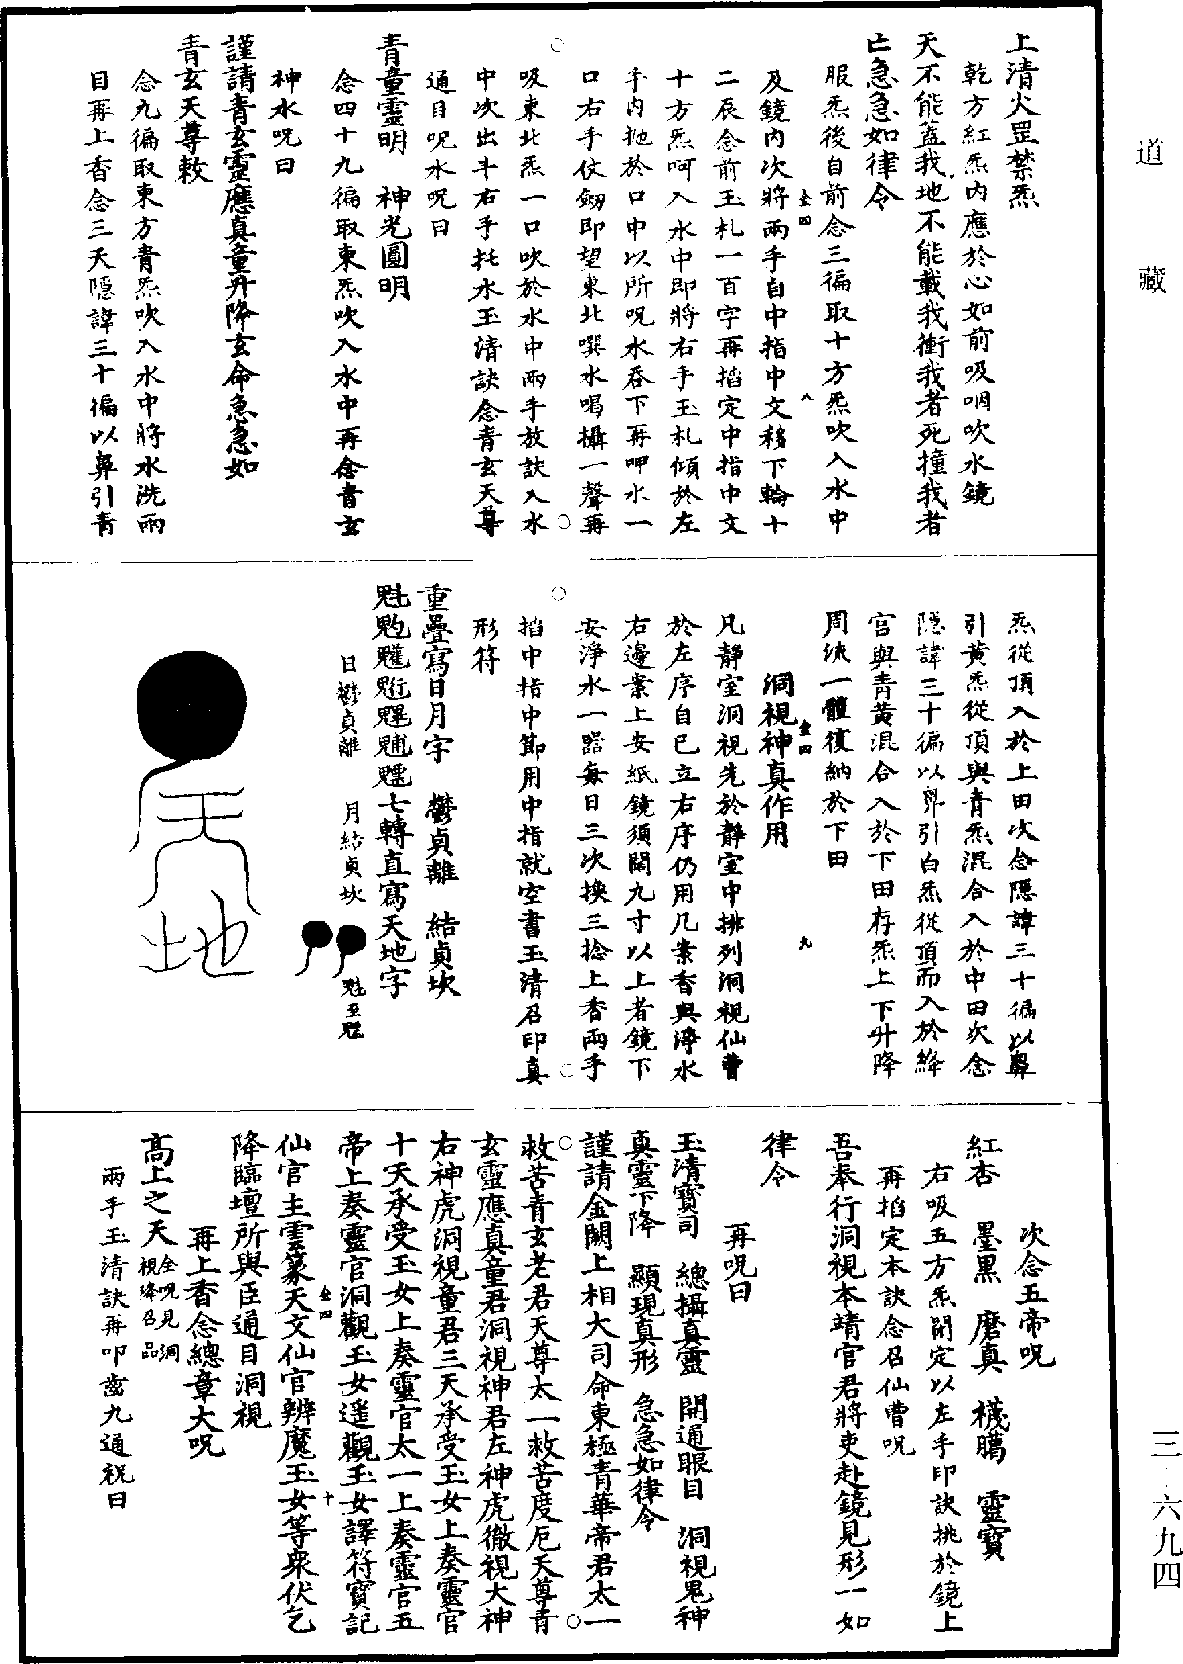 道藏
三·六九四
上清火罡禁炁
乾方紅炁內應於心如前吸咽吹水鏡
天不能蓋我地不能載我衝我者死撞我者
亡急急如律令
服炁後自前念三徧取十方炁吹入水中
及鏡內次將兩手自中指中文移下輪十
二辰念前玉札一百字再搯定中指中文
十方炁呵入水中即將右手玉札傾於左
手內抛於口中以所呪水吞下再呷水一
口右手仗劒即望東北噀水喝攝一聲再
吸東北炁一口吹於水中兩手放訣入水
中次出斗右手托水玉清訣念青玄天尊
通目呪水呪曰
青童靈明 神光圓明
念四十九徧取東炁吹入水中再念青玄
神水呪曰
謹請青玄靈應真童升降玄命急急如
青玄天尊敕
念九徧取東方青炁吹入水中將水洗兩
目再上香念三天隱諱三十徧以鼻引青
炁從頂入於上田次念隱諱三十徧以鼻
引黃炁從頂與青炁混合入於中田次念
隱諱三十徧以鼻引白炁從頂而入於絳
宮與青黃混合入於下田存炁上下升降
周流一體復納於下田
洞視神真作用
凡靜室洞視先於靜室中排列洞視仙曹
於左序自己立右序仍用几案香與淨水
右邊案上安紙鏡須闊九寸以上者鏡下
安淨水一器每日三次換三捻上香兩手
搯中指中節用中指就空書玉清召印真
形符
重疊寫日月字 鬱貞離 結貞坎
七轉直寫天地字
日鬱貞離 月結貞坎
天
地
次念五帝呪
紅杏 墨黑 磨真 靈寶
右吸五方炁閉定以左手印訣挑於鏡上
再搯定本訣念召仙曹呪
吾奉行洞視本靖官君將吏赴鏡見形一如
律令
再呪曰
玉清寶司 總攝真靈 開通眼目 洞視鬼神
真靈下降 顯現真形 急急如律令
謹請金闕上相大司命東極青華帝君太一
救苦青玄老君天尊太一救苦度厄天尊青
玄靈應真童君洞視神君左神虎徹視大神
右神虎洞視童君三天承受玉女上奏靈官
十天承受玉女上奏靈官太一上奏靈官五
帝上奏靈官洞觀玉女遥觀玉女譯符寶記
仙官主雲篆天文仙官辨魔玉女等衆伏乞
降臨壇所與臣通目洞視
再上香念總章大呪
高上之天全呪見洞視降召品
兩手玉清訣再叩齒九通祝曰